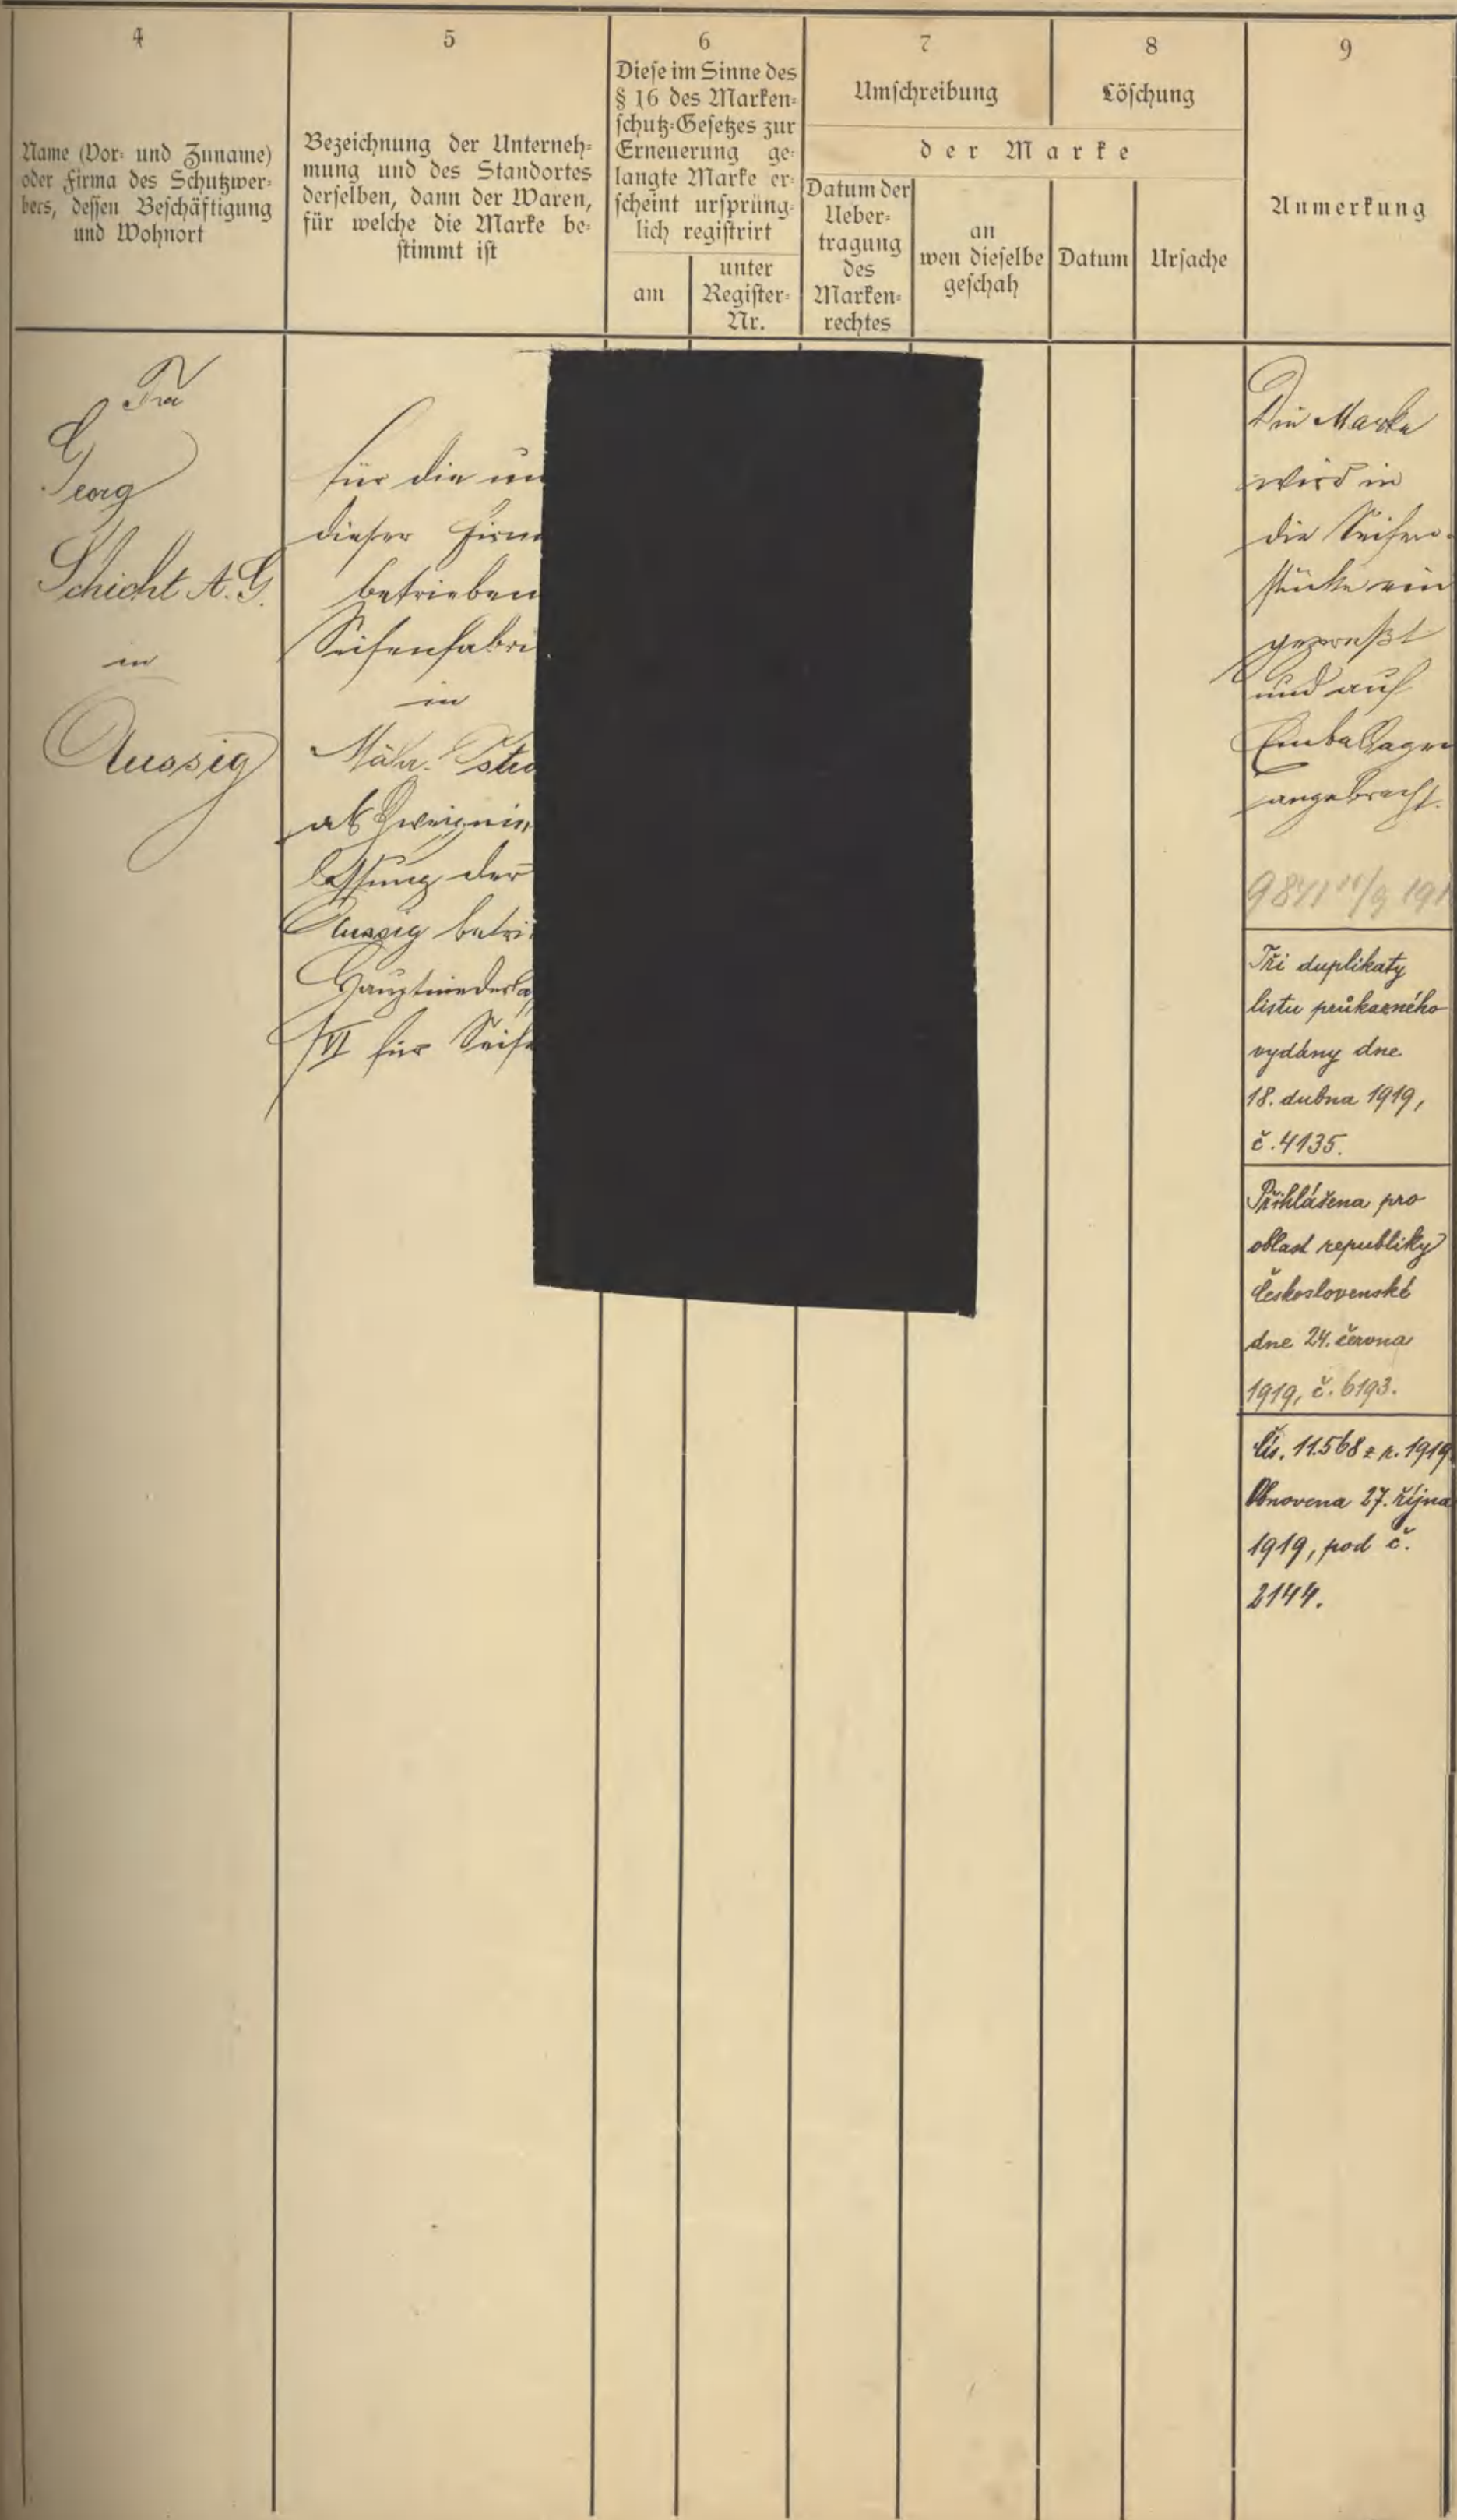 4
Name (Vor- und Zuname)
oder Firma des Schutzwer-
bers, dessen Beschäftigung
und Wohnort
5
Bezeichnung der Unterneh-
mung und des Standortes
derselben, dann der Waren,
für welche die Marke be-
stimmt ist
6
Diese im Sinne des
§ 16 des Marken-
schutz-Gesetzes zur
Erneuerung ge-
langte Marke er-
scheint ursprüng-
lich registrirt
am
unter
Register-
Nr.
7
Umschreibung
8
Löschung
der Marke
Datum der
Ueber-
tragung
des
Marken-
rechtes
an
wen dieselbe
geschah
Datum
Ursache
9
Anmerkung
Fa
Georg
Schicht A.G.
in
Aussig
für die
dieser
betrieben
Seifenfabri
in
Mähr. Ostra
als
lassung der
Aussig
Hauptniederla
VI für Seife
Die Marke
wird in
die Seifen-
stücke ein
gepreßt
und auf
Emballagen
angebracht.
Tři duplikaty
listu průkazného
vydány dne
18. dubna 1919,
č. 4135.
Přihlášena pro
oblast republiky
Československé
dne 24. června
1919, č. 6193.
Čís. 11.568 z r. 1919
Obnovena 27. října
1919, pod č.
2144.